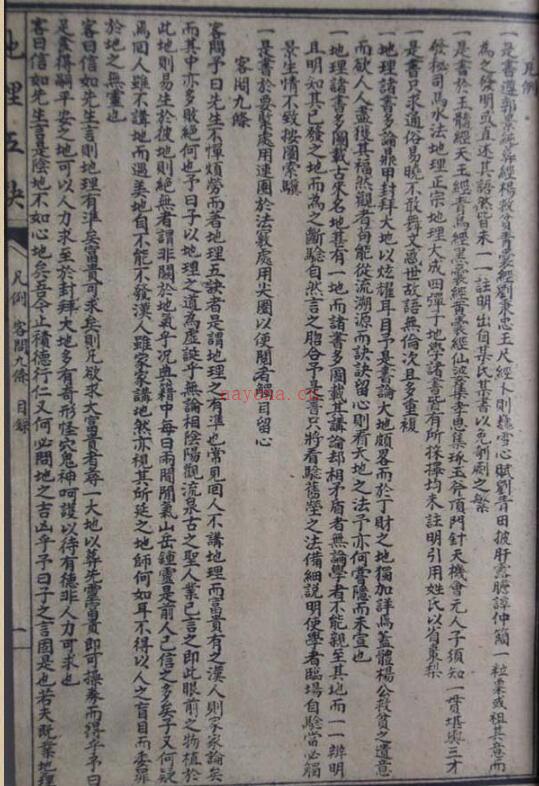 凡例
一是書遵郭景純葬經楊救貧青囊經劉秉忠玉尺經卜則巍雪心賦劉青田披肝露膽譚仲簡一粒粟或祖其意而
為之發明或直述其語然皆未一一註明出自某氏某書以免剞劂之繁
一是書於玉髓經天玉經青烏經黑囊經黃囊經仙婆集李思集琢玉斧頂門針天機會元人子須知一貫堪輿三才
發秘司馬水法地理正宗地理大成四彈子地學諸書皆有所採擇均未註明引用姓氏以省棗梨
一是書只求通俗易曉不敢舞文惑世故語無倫次且多重複
一地理諸書多論鼎甲封拜大地以炫耀耳目予是書論大地頗畧而於丁財之地獨加詳焉蓋體楊公救貧之遺意
而欲人人盡獲其福然觀者苟能從流溯源而訣訣留心則看大地之法予亦何嘗隱而未宣也
一地理諸書多圖載古來名地甚有一地而諸書多圖載其講論却相矛盾者無論學者不能親至其地而一一辨明
且明知其已發之地而為之斷驗自然言之脗合予是書只將看驗舊塋之法備細說明使學者臨場自驗當必觸
景生情不致按圖索驥
一是書於要緊處用連圈於法竅處用尖圈以便閱者觸目留心
客問九條
客問予曰先生不憚煩勞而著地理五訣者是謂地理之有準也常見回人不講地理而富貴有之漢人則家家論矣
而其中亦多敗絕何也予曰子以地理之道為虛誕乎無論相陰陽觀流泉古之聖人業已言之即此眼前之物植於
此地則易生於彼地則絕無者謂非關於地氣乎况典籍中每曰兩間閒氣山岳鍾靈是前人已信之多矣子又何疑
焉回人雖不講地而遇美地自不能不發漢人雖家家講地然亦視其所延之地師何如耳不得以人之盲目而委罪
於地之無靈也
客曰信如先生言則地理有準矣富貴可求矣則凡欲求大富貴者尋一大地以葬先靈富貴即可操券而得乎予曰
是蓋得嗣平安之地可以人力求至於封拜大地多有奇形怪穴鬼神呵護以待有德非人力可求也
客曰信如先生言是陰地不如心地矣吾令止積德行仁又何必問地之吉凶乎予曰子之言固是也若夫既業地理
地理五訣
凡例 客問九條 目錄
一
nayona.cn